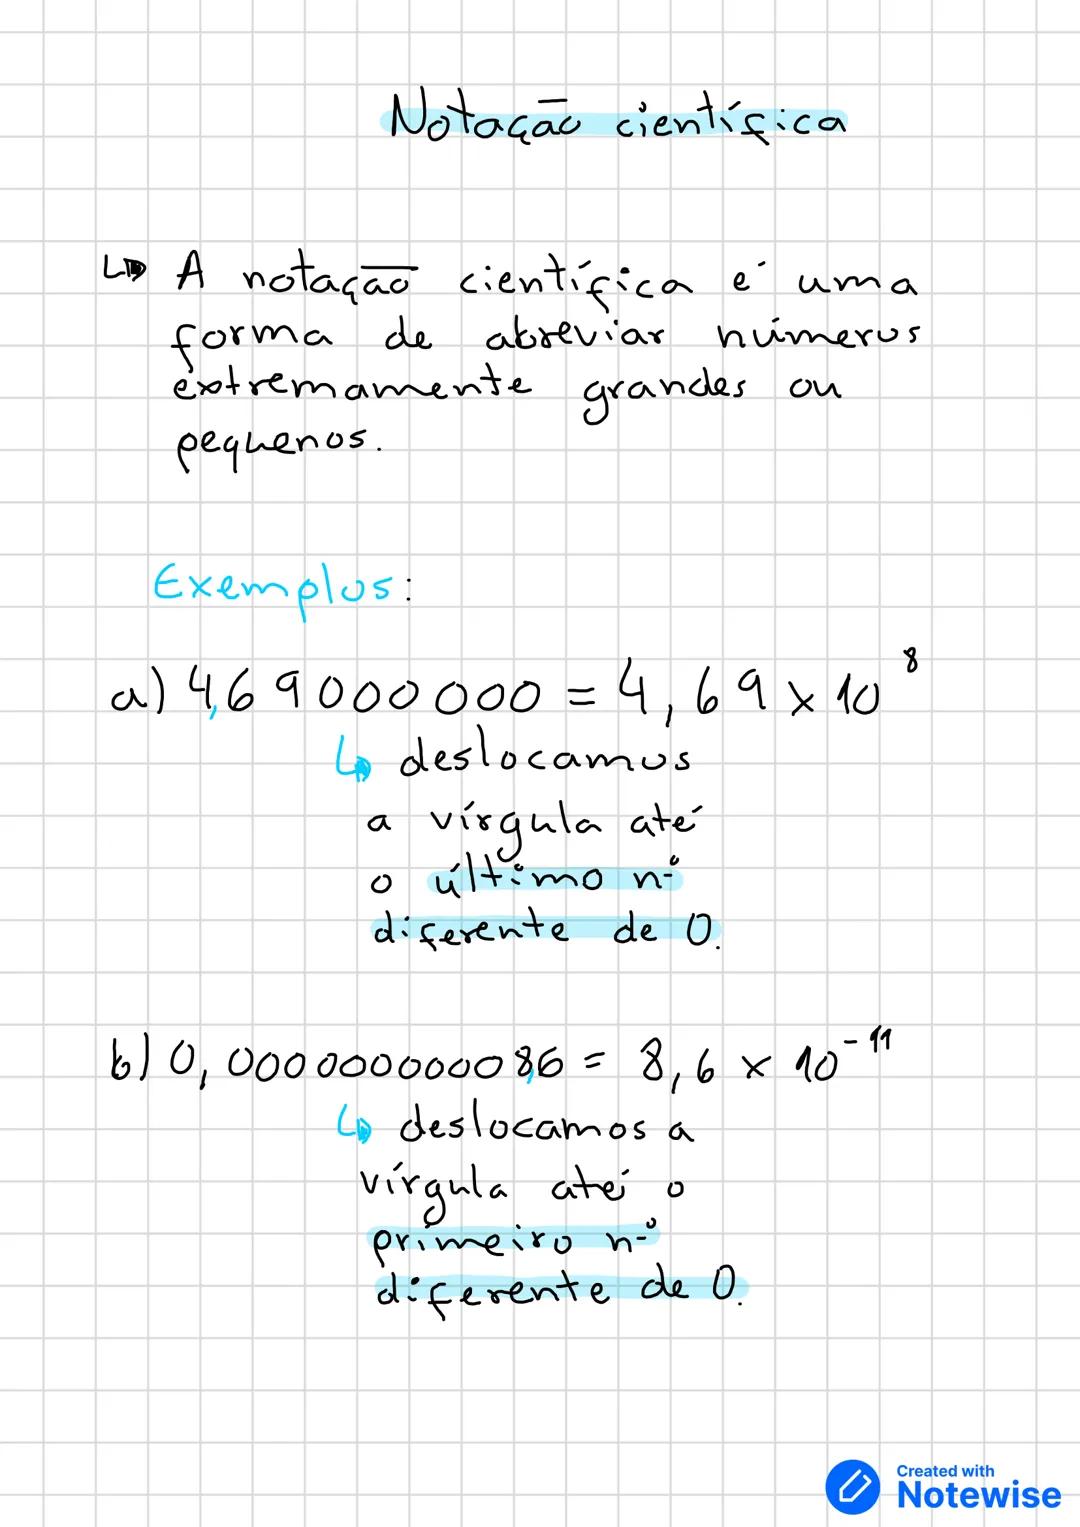 Notação científica
A notação científica é uma
forma de abreviar números
extremamente grandes ou
pequenos.
Exemplos:
a) 4,69000000 = 4,69 x 10⁸
deslocamos
a vírgula até
o último nº
diferente de 0.
b) 0,000000000086 = 8,6 x 10⁻¹¹
deslocamos a
vírgula até o
primeiro nº
diferente de 0.
Created with
Notewise